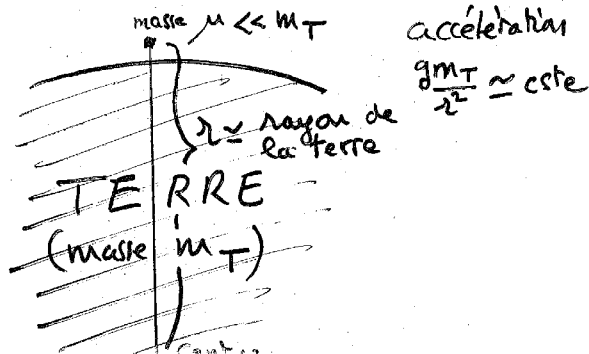 masse μ << m_T
accélération
gm_T/r² ≃ cste
r ≃ rayon de
la terre
TERRE
(masse m_T)